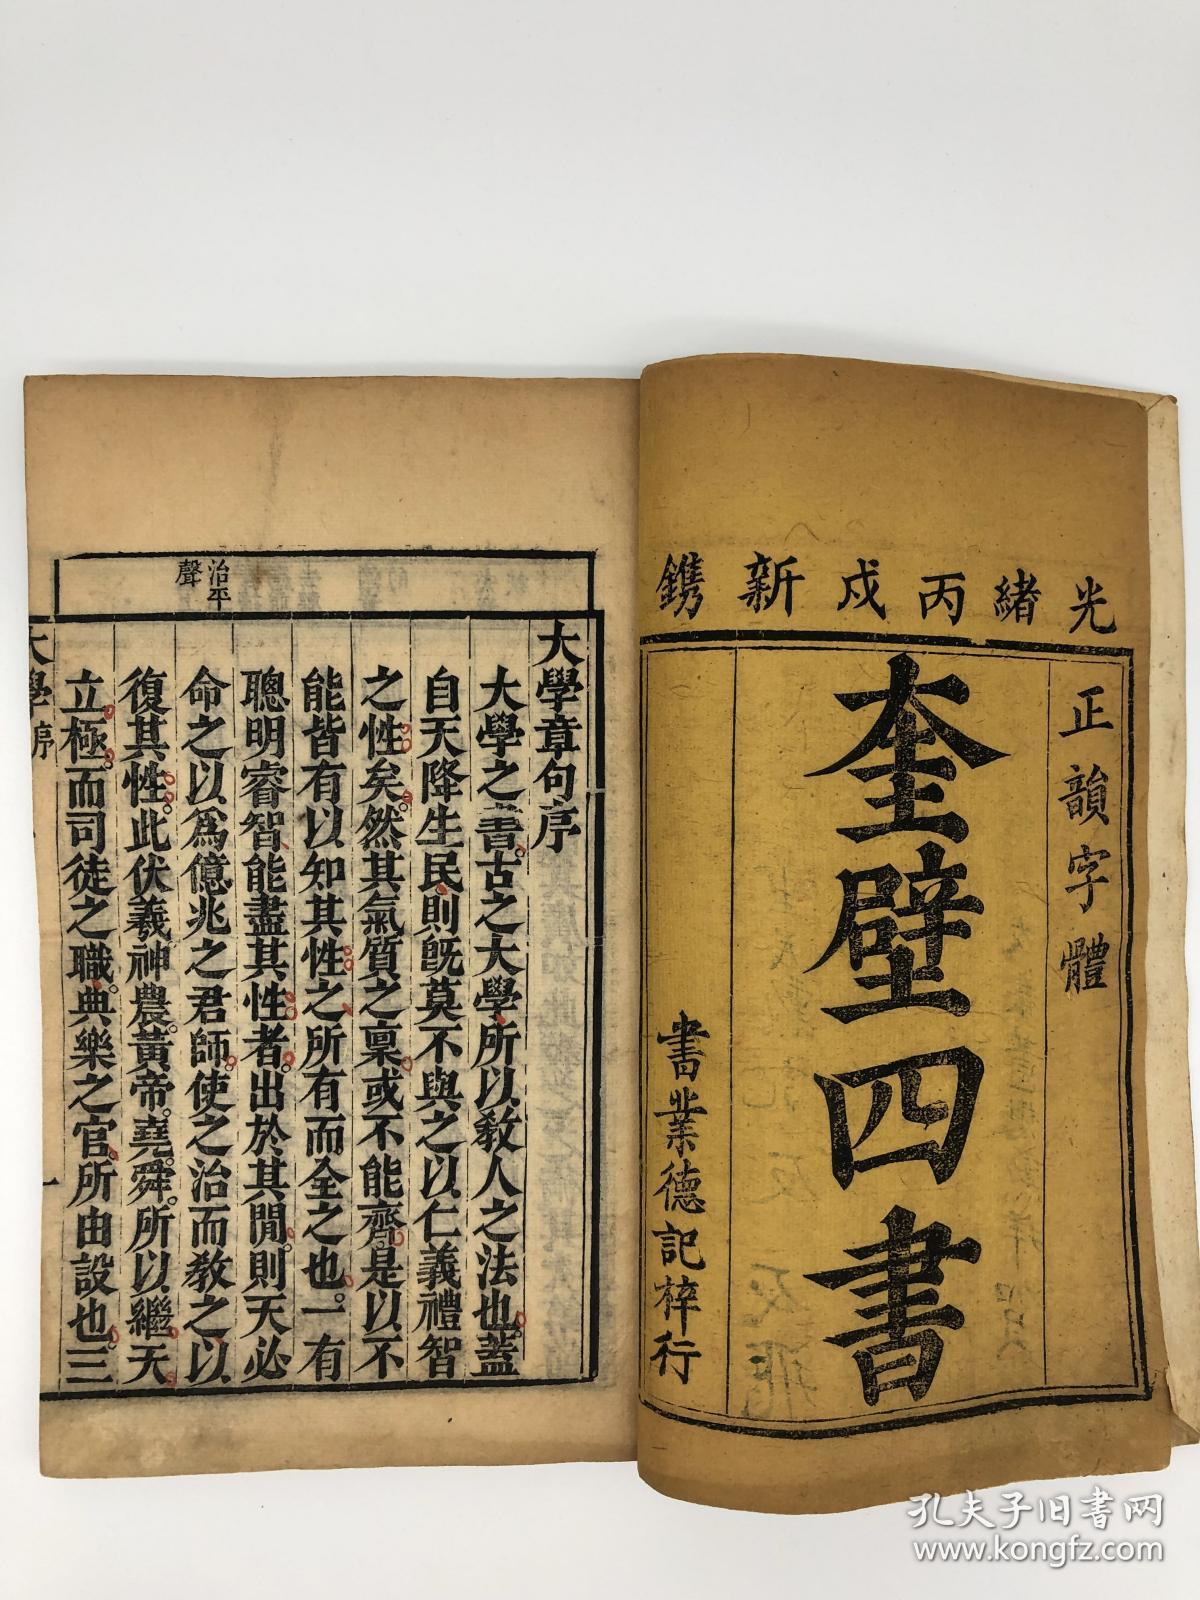 光緒丙戌新鐫
正韻字體
奎壁四書
書業德記梓行
治平
聲
大學章句序
大學之書古之大學所以教人之法也蓋
自天降生民則旣莫不與之以仁義禮智
之性矣然其氣質之稟或不能齊是以不
能皆有以知其性之所有而全之也一有
聰明睿智能盡其性者出於其閒則天必
命之以爲億兆之君師使之治而教之以
復其性此伏羲神農黃帝堯舜所以繼天
立極而司徒之職典樂之官所由設也三
大學序
一
孔夫子旧书网
www.kongfz.com